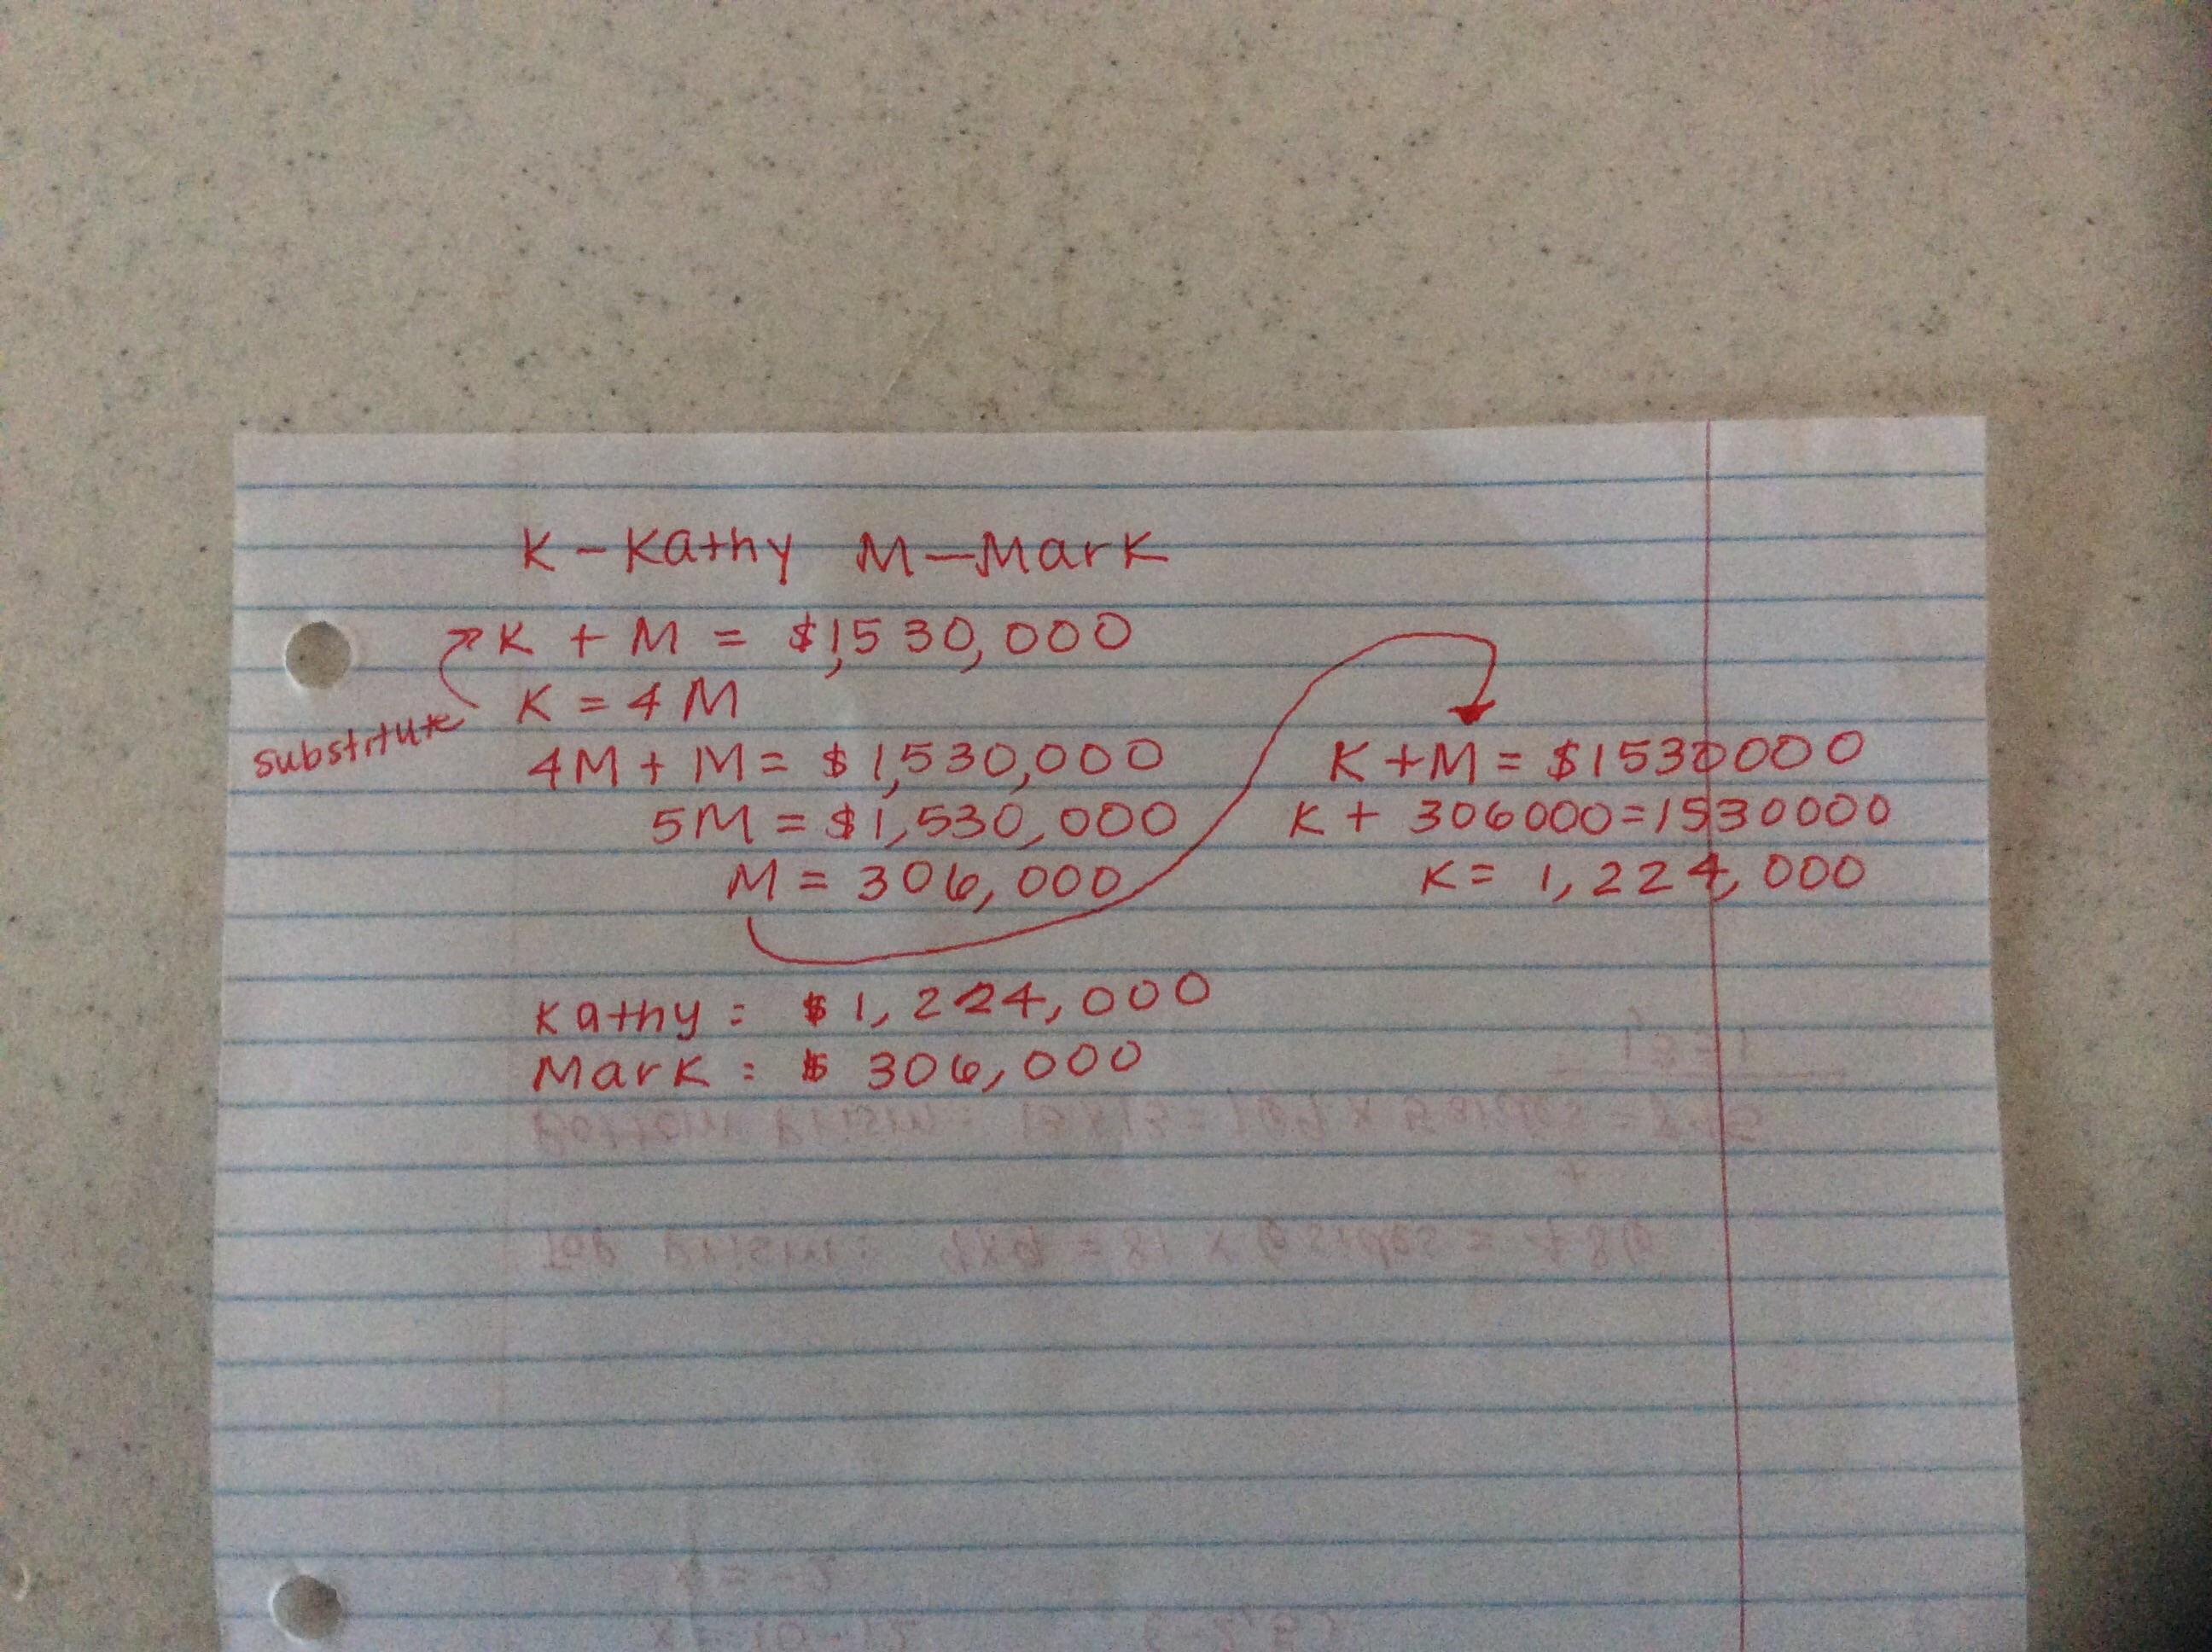 K - Kathy M - Mark
K + M = $1,530,000
K = 4M
substitute
4M + M = $1,530,000
5M = $1,530,000
M = 306,000
K + M = $1530000
K + 306000 = 1530000
K = 1,224,000
Kathy: $1,224,000
Mark: $ 306,000